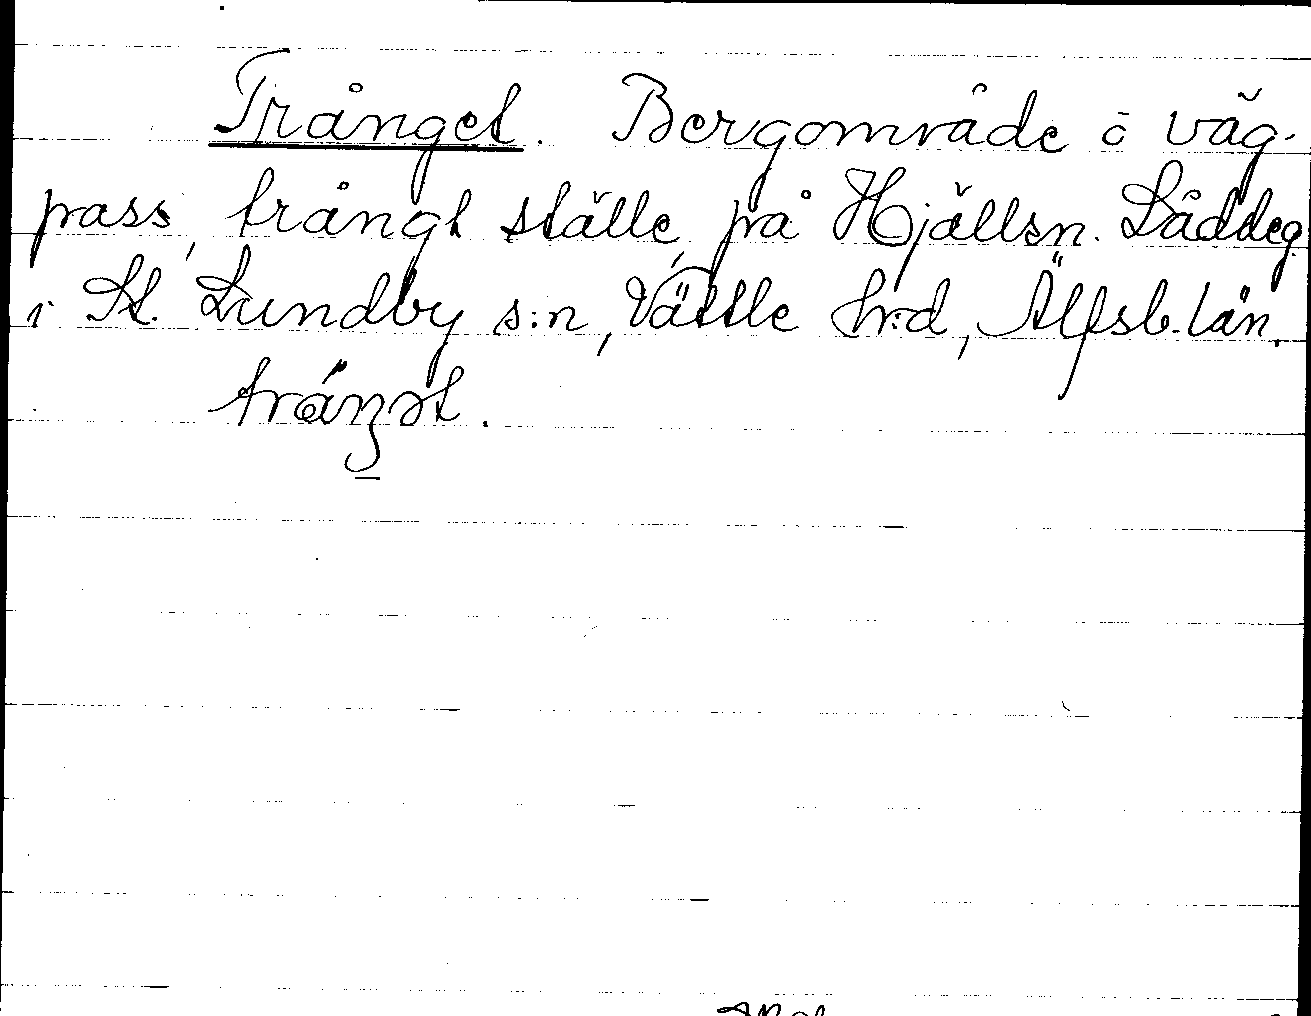 Trånget. Bergområde o väg-
pass, trångt ställe, på Hjällsn. Låddeg.
i St. Lundby s:n, Vättle h:d, Älfsb. län.